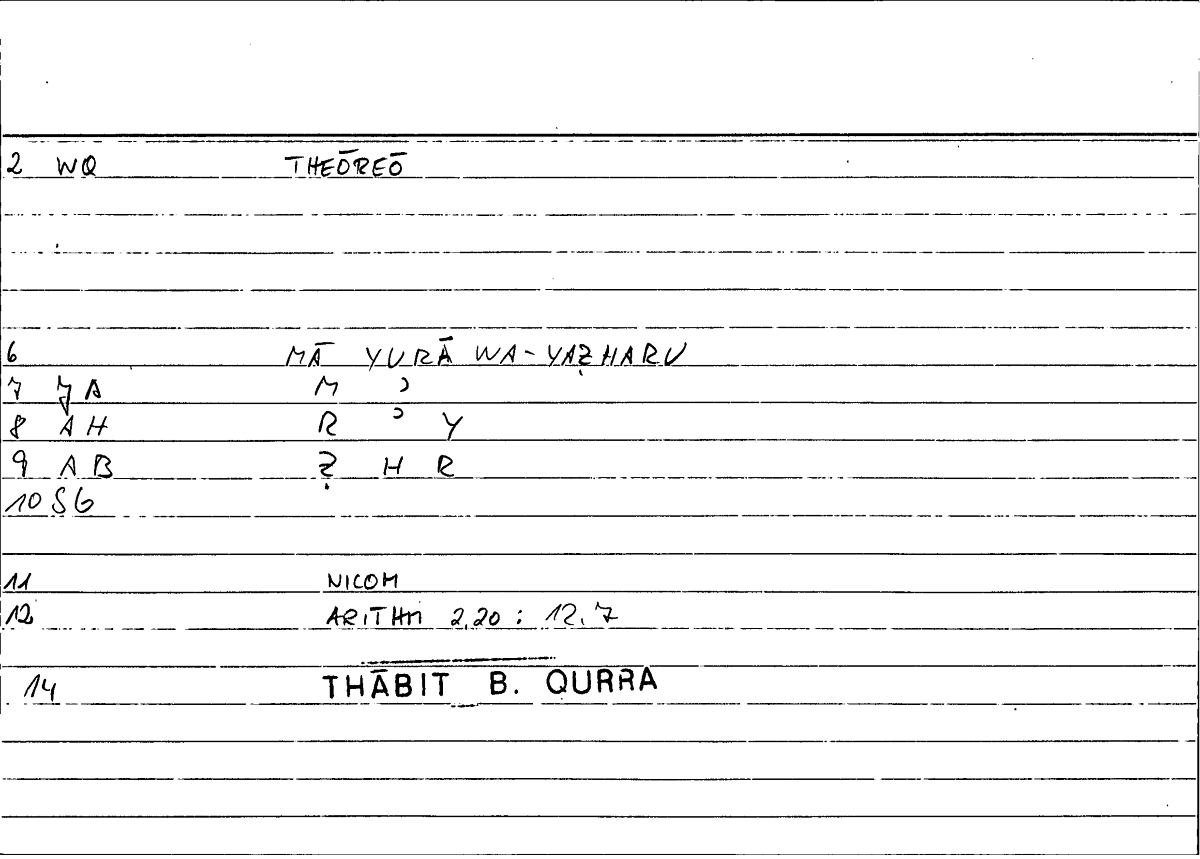 2 WQ THEŌREŌ
6 MĀ YURĀ WA-YAẒHARU
7 JA M ʾ
8 AH R ʾ Y
9 AB Ẓ H R
10 SG
11 NICOM
12 ARITHM 2,20 : 12,7
14 THĀBIT B. QURRA